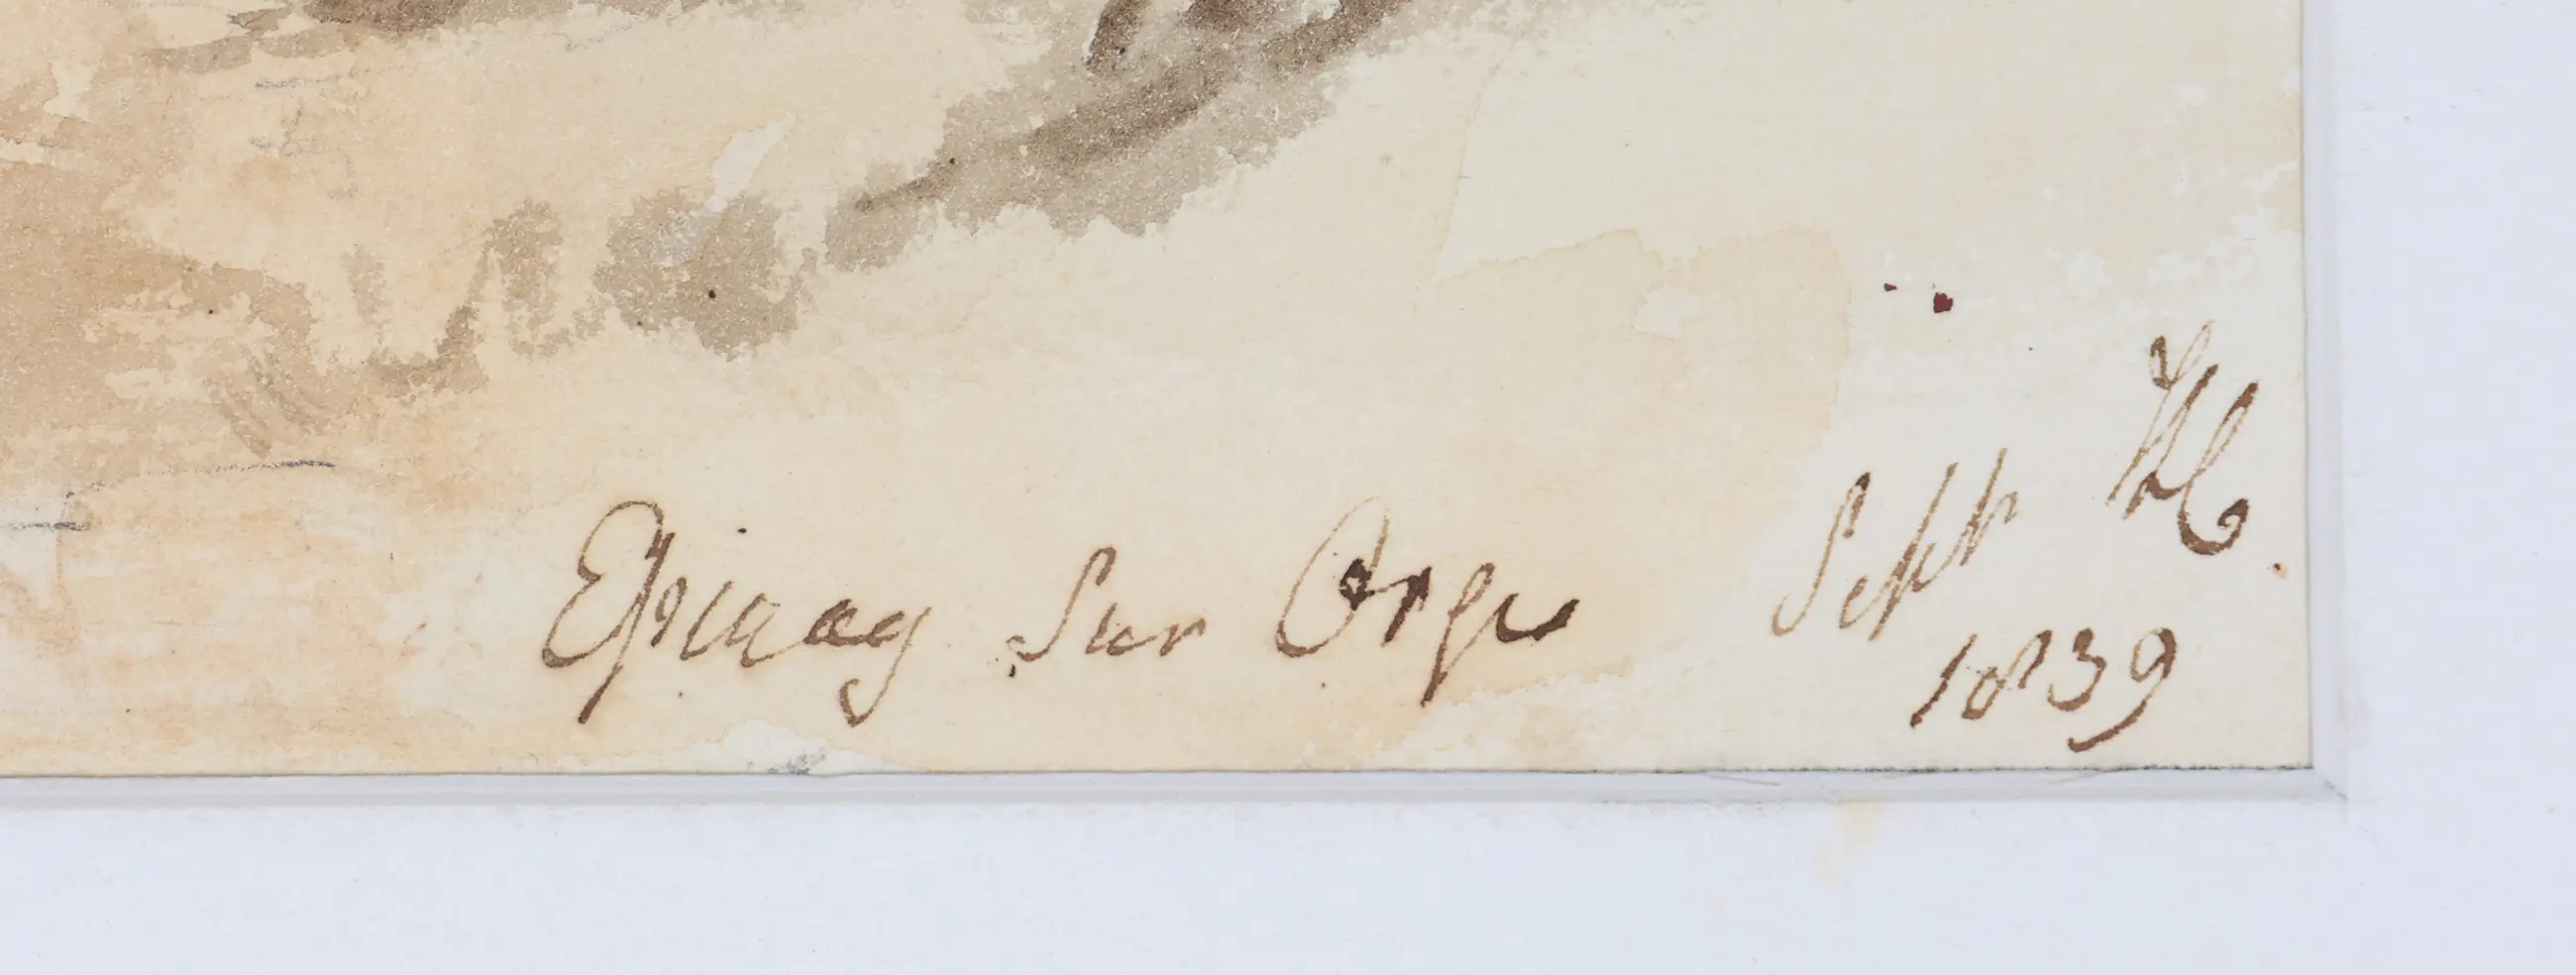 Epinay Sur Orge Sept
1839